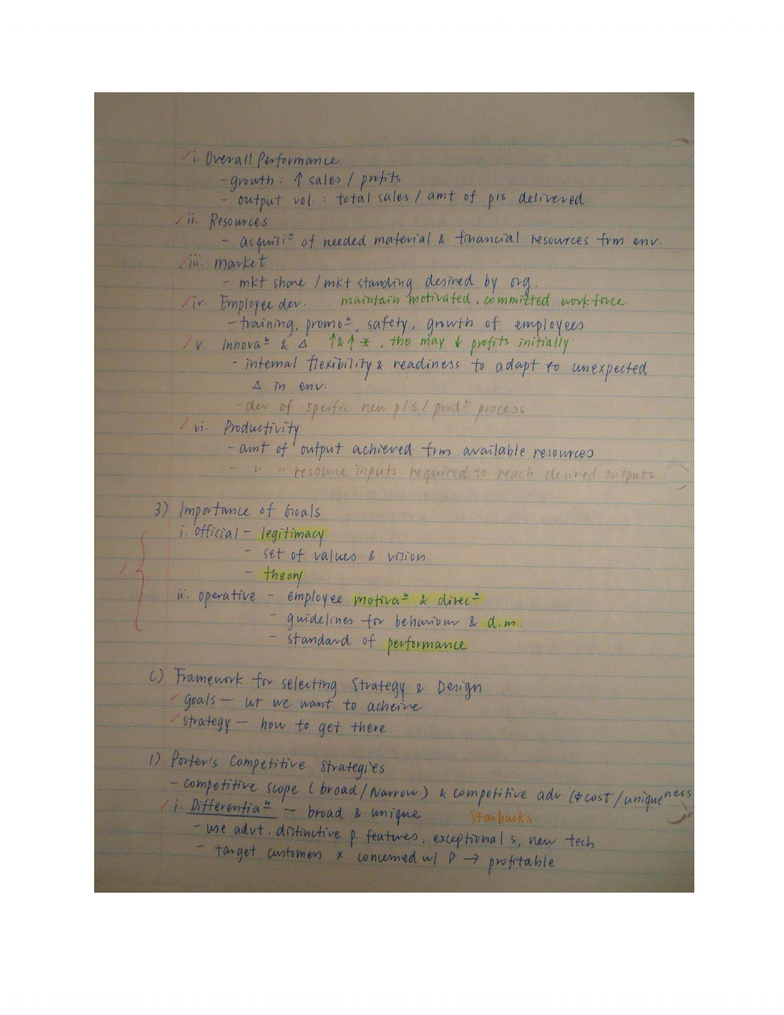 i. Overall Performance
- growth : ↑ sales / profits
- output vol. : total sales / amt of p/s delivered
ii. Resources
- acquisiⁿ of needed material & financial resources frm env.
iii. Market
- mkt share / mkt standing desired by org.
iv. Employee dev. maintain motivated, committed workforce
- training, promoⁿ, safety, growth of employees
v. Innovaⁿ & Δ ↑&↑ *, tho may ↓ profits initially
- internal flexibility & readiness to adapt to unexpected
Δ in env.
- dev of specific new p/s / prodⁿ process
vi. Productivity
- amt of output achieved frm available resources
- " " resource inputs required to reach desired outputs
3) Importance of Goals
i. Official - legitimacy
- set of values & vision
- theory
ii. operative - employee motivaⁿ & direcⁿ
- guidelines for behaviour & d.m.
- standard of performance
C) Framework for selecting Strategy & Design
goals — wt we want to acheive
strategy — how to get there
1) Porter's Competitive Strategies
- competitive scope (broad/Narrow) & competitive adv (↓cost/uniqueness
i. Differentiaⁿ — broad & unique Starbucks
- use advt. distinctive p. features, exceptional s, new tech
- target customers × concerned w/ P → profitable